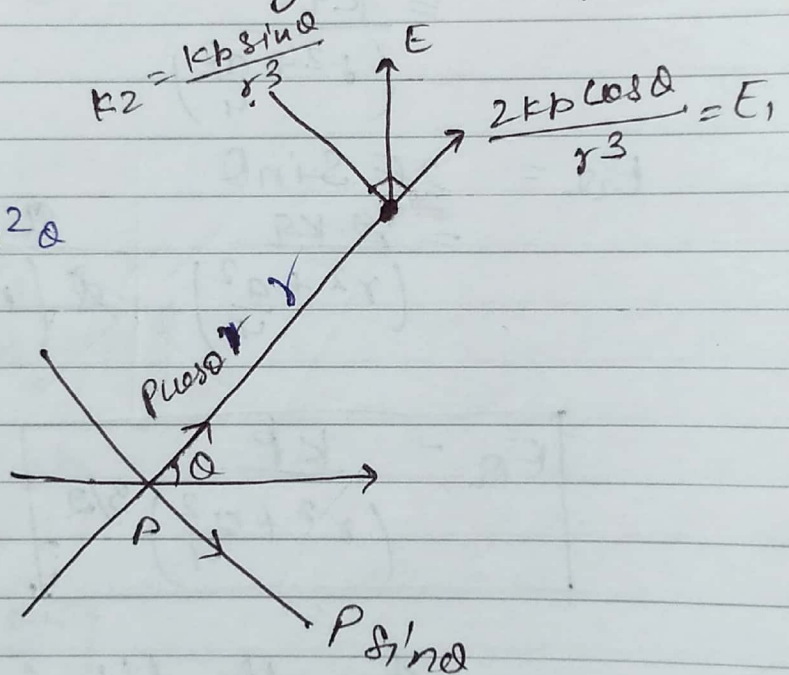 K2 = kp sinθ / r3
E
2kp cosθ / r3 = E1
2θ
r
pcosθ r
θ
P
P sinθ